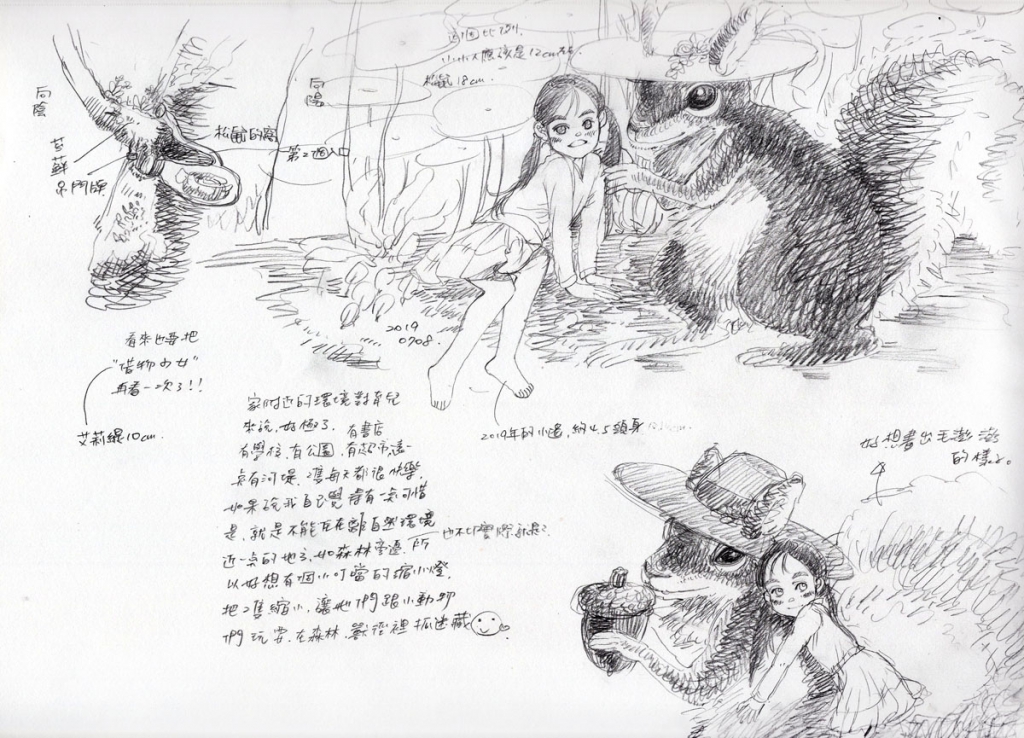 這個比例,
小小大應該是12cm左右.
松鼠18cm.
向陰
向陽
松鼠的窩
第2個入口
苔蘚
是門牌
2019
0708.
看來也要把
"借物少女"
再看一次了!!
艾莉緹10cm.
2019年的小過,約4.5頭身
家附近的環境對育兒
來說,好極了.有書店
有學校.有公園.有超市.遠一
點有河堤.2隻每天都很快樂.
如果說我自己覺得有一點可惜
是.就是不能住在離自然環境
近一點的地方.如森林旁邊.所
以好想有個小叮噹的縮小燈.
把2隻縮小.讓她們跟小動物
們玩耍.在森林.叢裡抓迷藏
也不切實際就是?
好想畫出毛澎澎
的樣子。